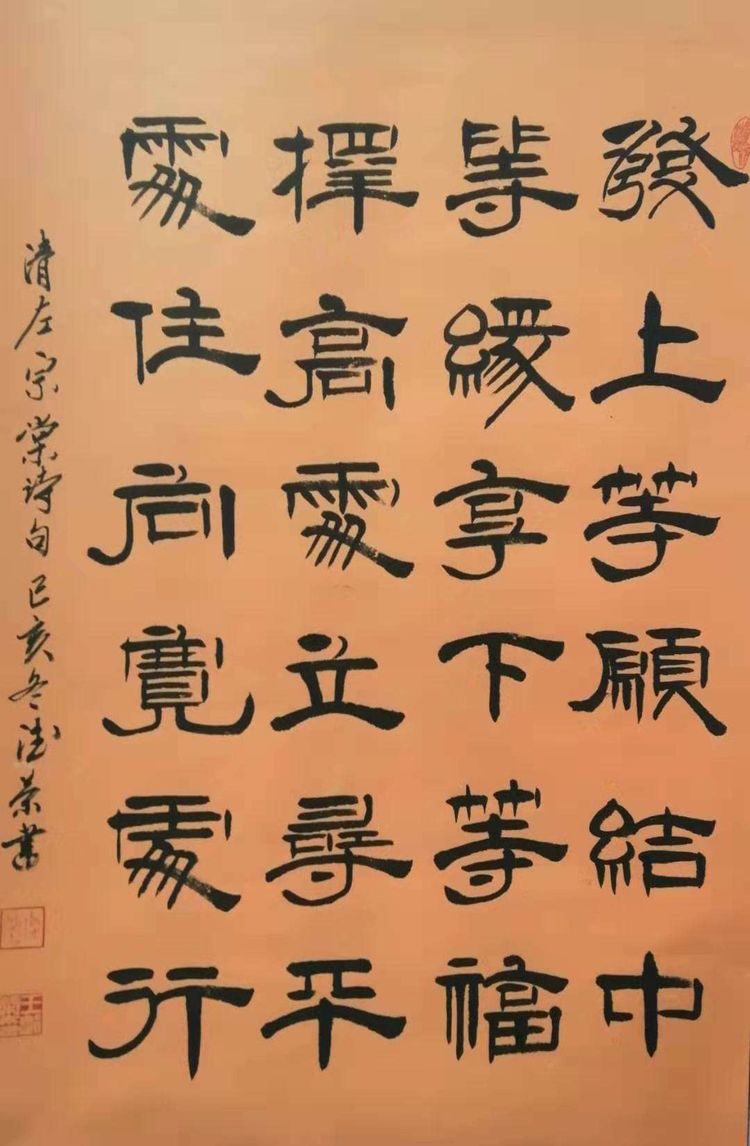 發上等願結中
等緣享下等福
擇高處立尋平
處住向寬處行
清左宗棠詩句己亥冬德榮書